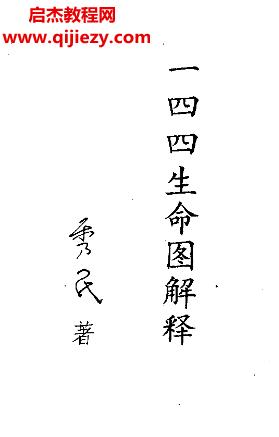 启杰教程网
www.qijiezy.com
一四四生命图解释
秀民 著